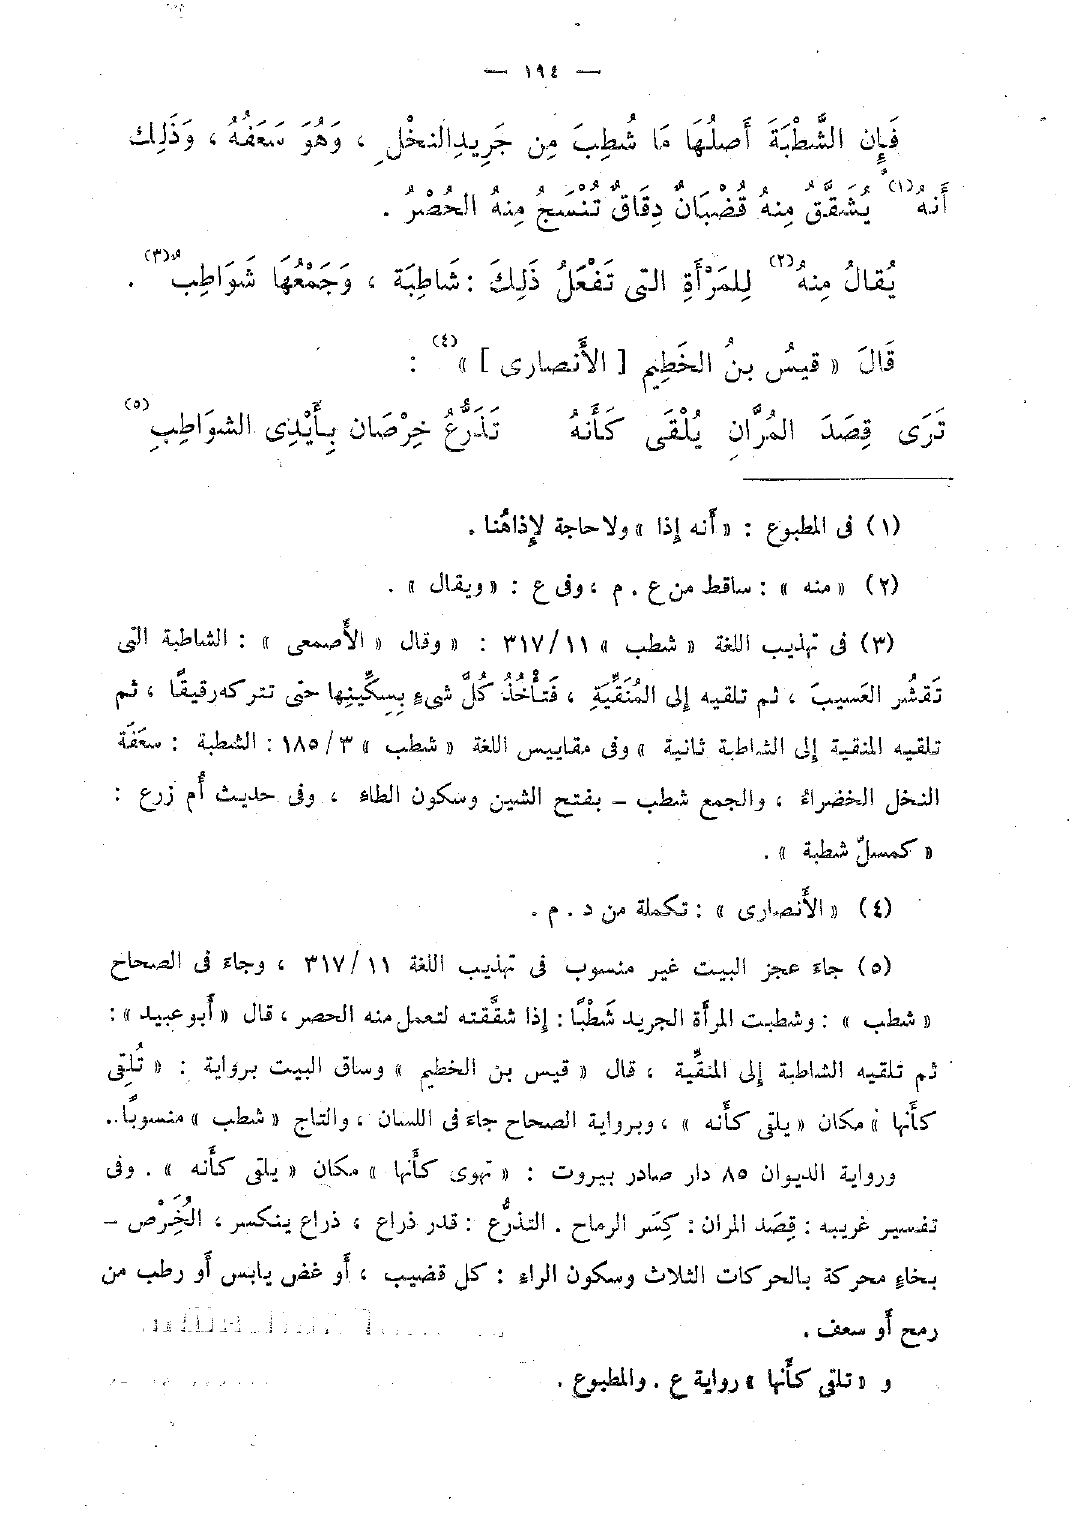 — ١٩٤ —
فَإِن الشَّطْبَةَ أَصلُهَا مَا شُطِبَ مِن جَرِيدِالنخْلِ ، وَهُوَ سَعَفُهُ ، وَذَلِك
أَنهُ(١) يُشَقَّقُ مِنهُ قُضْبَانٌ دِقَاقٌ تُنْسَجُ مِنهُ الحُصْرُ .
يُقالُ مِنهُ(٢) لِلمَرْأَةِ التى تَفْعَلُ ذَلِكَ : شَاطِبَة ، وَجَمْعُهَا شَوَاطِبُ(٣) .
قَالَ « قيسُ بنُ الخَطِيمِ [ الأَنصارى ] »(٤) :
تَرَى قِصَدَ المُرَّانِ يُلْقَى كَأَنهُ تَذَرُّعُ خِرْصَان بِأَيْدِى الشوَاطِبِ(٥)
(١) فى المطبوع : « أَنه إِذا » ولاحاجة لإِذاهُنا .
(٢) « منه » : ساقط من ع . م ، وفى ع : « ويقال » .
(٣) فى تهذيب اللغة « شطب » ٣١٧/١١ : « وقال « الأَصمعى » : الشاطبة التى
تَقشُر العَسيبَ ، ثم تلقيه إلى المُنَقِّيَةِ ، فَتأْخُذُ كُلَّ شىءٍ بِسِكِّينِها حتى تتركه رقيقًا ، ثم
تلقيه المنقية إِلى الشاطبة ثانية » وفى مقاييس اللغة « شطب » ١٨٥/٣ : الشطبة : سعَفَة
النخل الخضراءُ ، والجمع شطب – بفتح الشين وسكون الطاء ، وفى حديث أُم زرع :
« كمسلِّ شطبة » .
(٤) « الأَنصارى » : تكملة من د . م .
(٥) جاء عجز البيت غير منسوب فى تهذيب اللغة ٣١٧/١١ ، وجاءَ فى الصحاح
« شطب » : وشطبت المرأَة الجريد شَطْبًا : إذا شقَّقته لتعمل منه الحصر ، قال « أَبو عبيد » :
ثم تلقيه الشاطبة إلى المنقِّية ، قال « قيس بن الخطيم » وساق البيت برواية : « تُلقى
كأَنها » مكان « يلقى كأَنه » ، وبرواية الصحاح جاءَ فى اللسان ، والتاج « شطب » منسوبًا..
ورواية الديوان ٨٥ دار صادر بيروت : « تهوى كأَنها » مكان « يلقى كأَنه » . وفى
تفسير غريبه : قِصَد المران : كِسَر الرماح . التذرُّع : قدر ذراع ، ذراع ينكسر ، الخُِرَْص –
بخاءٍ محركة بالحركات الثلاث وسكون الراء : كل قضيب ، أَو غض يابس أَو رطب من
رمح أَو سعف .
و « تلقى كأَنها » رواية ع . والمطبوع .